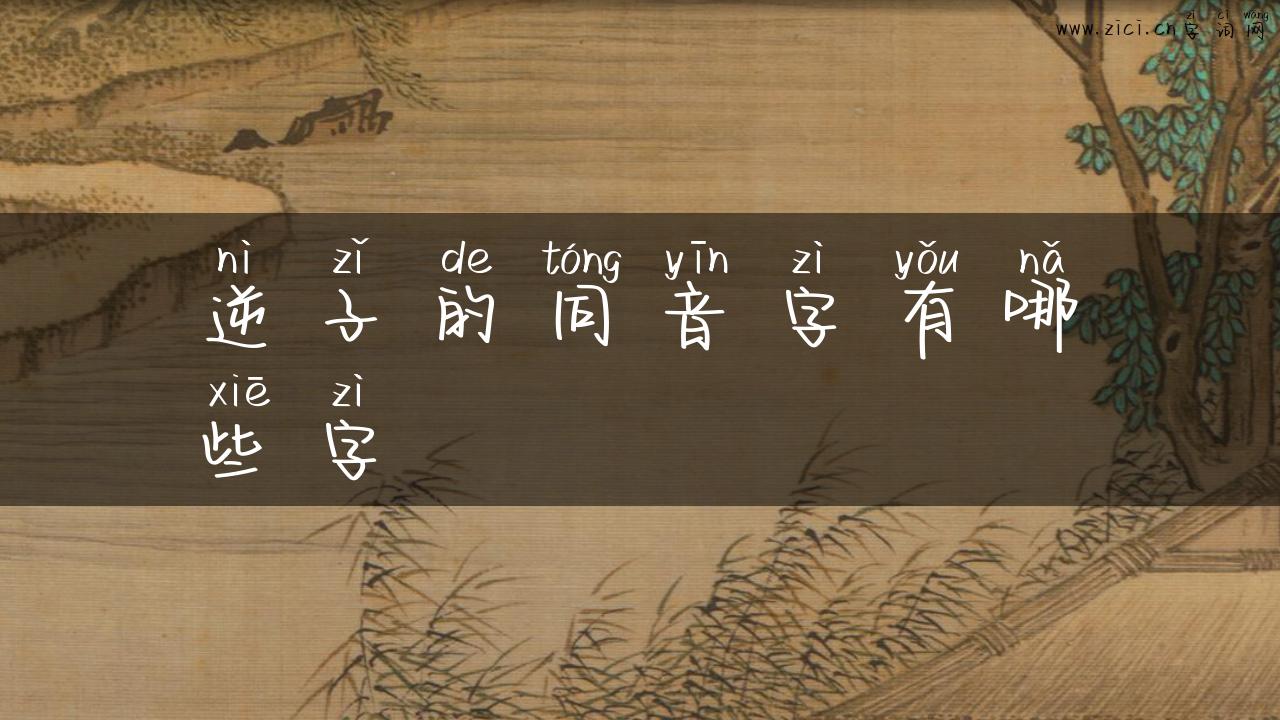 zì cí wǎng
www.zici.cn 字词网
nì zǐ de tóng yīn zì yǒu nǎ
逆子的同音字有哪
xiē zì
些字